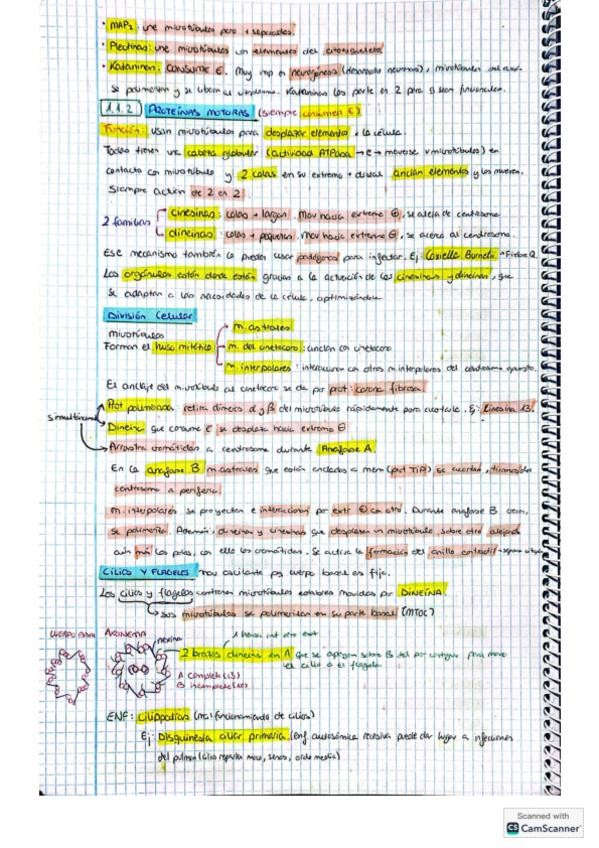 • MAP2: une microtúbulos pero + separados.
• Plectinas: une microtúbulos con elementos del citoesqueleto
• Kataninas: CONSUME E. Muy imp en neurogénesis (desarrollo neuronas), microtúbulos
se polimerizan y se liberan al citoplasma. Kataninas los parte en 2 para q sean funcionales.
1.1.2 PROTEÍNAS MOTORAS (siempre consumen E)
Función: usan microtúbulos para desplazar elementos x la célula.
Todas tienen una cabeza globular (actividad ATPasa → E → moverse x microtúbulos) en
contacto con microtúbulo y 2 colas en su extremo + distal anclan elementos y los mueven.
Siempre actúan de 2 en 2
2 familias
Cinesinas: colas + largas. Mov hacia extremo ⊕, se aleja de centrosoma
dineinas: colas + pequeñas. Mov hacia extremo ⊖, se acerca al centrosoma.
Ese mecanismo también lo pueden usar patógenos para infectar. Ej: Coxiella Burnetii → Fiebre Q
Los orgánulos están donde están gracias a la actuación de las cinesinas y dineinas, que
se adaptan a las necesidades de la célula, optimizándola
División Celular
microtúbulos
Forman el huso mitótico
m. astrales
m. del cinetocoro: unión con cinetocoro
m. interpolares: interaccionan con otros m interpolares del centrosoma opuesto.
El anclaje del microtúbulo al cinetocoro se da por prot: corona fibrosa
simultáneo
Prot polimerasa: retira dímeros α y β del microtúbulo rápidamente para acortarlo. Ej: Cinesina 13.
Dineina que consume E se desplaza hacia extremo ⊖
→ Arrastra cromátidas a centrosoma durante Anafase A.
En la anafase B m astrales que están anclados a mem (prot TIP) se acortan,
centrosoma a periferia.
m. interpolares se proyectan e interaccionan por extr ⊕ con otro. Durante anafase B crecen,
se polimeriza. Además, dineinas y cinesinas que desplazan un microtúbulo sobre otro alejando
aún más los polos, con ello las cromátidas. Se activa la formación del anillo contráctil
CILIOS Y FLAGELOS mov oscilante pq cuerpo basal es fijo.
Los cilios y flagelos contienen microtúbulos estables movidos por DINEÍNA.
→ sus microtúbulos se polimerizan en su parte basal (MTOC)
CUERPO BASAL
AXONEMA
nexina
1 hacia int otro ext
2 brazos dineina en A que se apoyan sobre B del par contiguo para mover
el cilio o el flagelo.
A completo (13)
B incompleto (10)
ENF: Ciliopatías (mal funcionamiento de cilios)
Ej: Disquinesia ciliar primaria. (Enf autosómica recesiva puede dar lugar a infecciones
del pulmón (cilios repulsa moco, senos, oído medio)
Scanned with
CS CamScanner